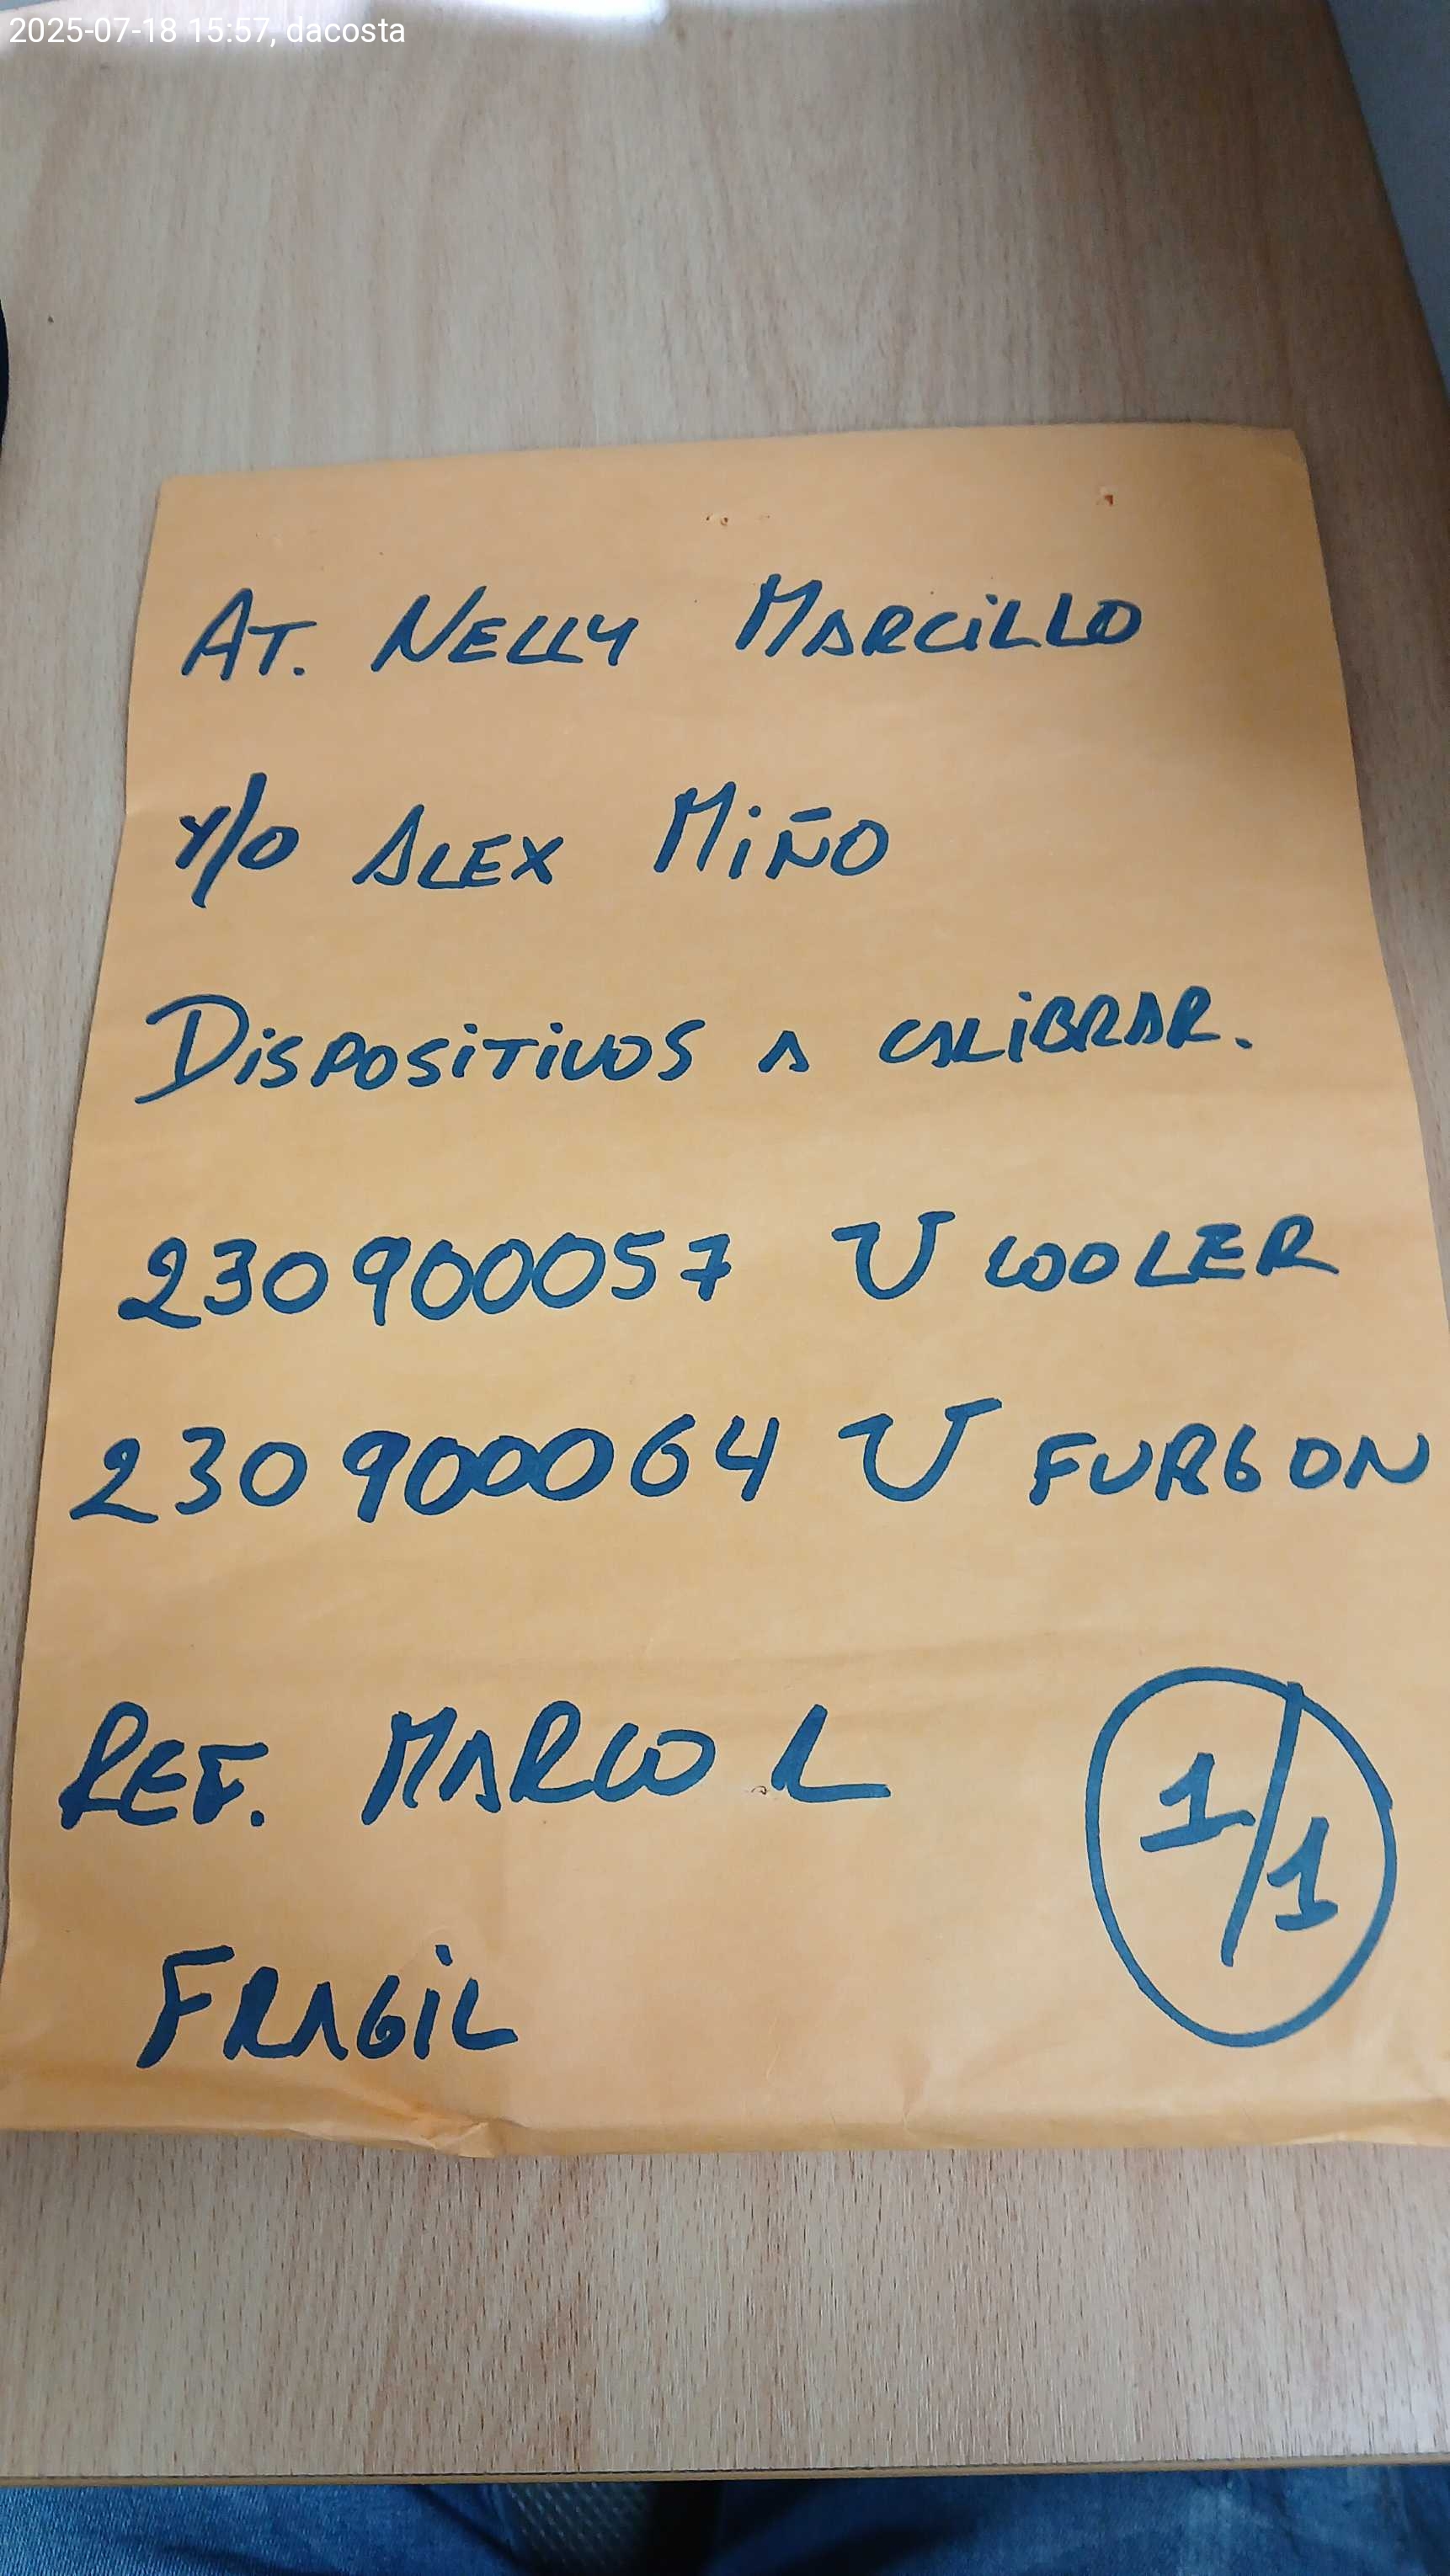 2025-07-18 15:57, dacosta
AT. NELLY MARCiLLO
Y/O ALEX MiÑO
DiSPOSiTiVOS A CALiBRAR.
230900057 U COOLER
230900064 U FURGON
REF. MARCO L
1/1
FRAGiL